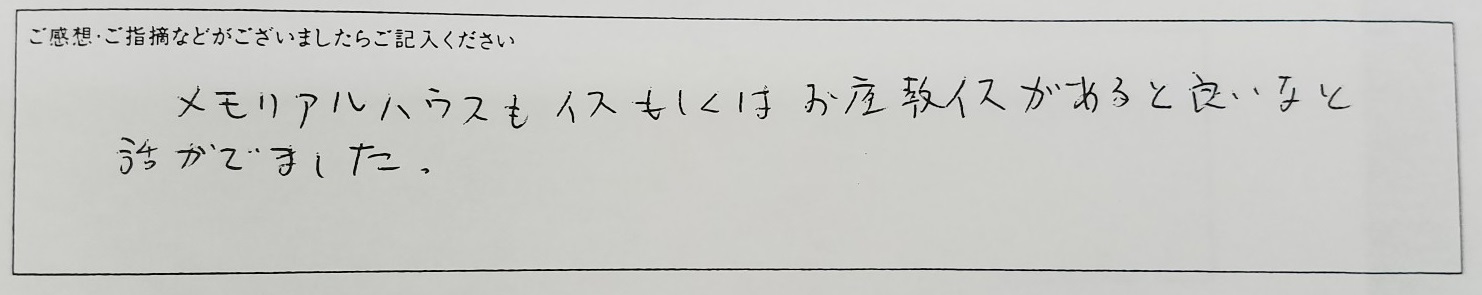 ご感想・ご指摘などがございましたらご記入ください
メモリアルハウスも イスもしくは お座敷イスがあると良いなと
話がでました。